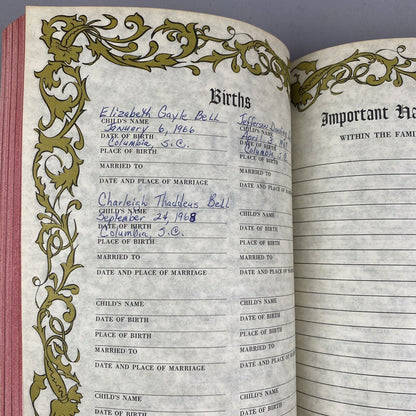 Births
Elizabeth Gayle Bell
CHILD'S NAME
January 6, 1966
DATE OF BIRTH
Columbia S.C.
PLACE OF BIRTH
MARRIED TO
DATE AND PLACE OF MARRIAGE
Charleigh Thaddeus Bell
CHILD'S NAME
September 24, 1968
DATE OF BIRTH
Columbia, S.C.
PLACE OF BIRTH
MARRIED TO
DATE AND PLACE OF MARRIAGE
CHILD'S NAME
DATE OF BIRTH
PLACE OF BIRTH
MARRIED TO
DATE AND PLACE OF MARRIAGE
CHILD'S NAME
DATE OF BIRTH
PLACE OF BIRTH
MARRIED TO
DATE AND PLACE OF MARRIAGE
Jefferson
CHILD'S NAME
April
DATE OF BIRTH
Columbia S.
PLACE OF BIRTH
MARRIED TO
DATE AND PLACE OF
CHILD'S NAME
DATE OF BIRTH
PLACE OF BIRTH
MARRIED TO
DATE AND PLACE OF
CHILD'S NAME
DATE OF BIRTH
PLACE OF BIRTH
MARRIED TO
DATE AND PLACE OF
CHILD'S NAME
DATE OF BIRTH
PLACE OF BIRTH
MARRIED TO
DATE AND PLACE
Important
WITHIN THE FAMI